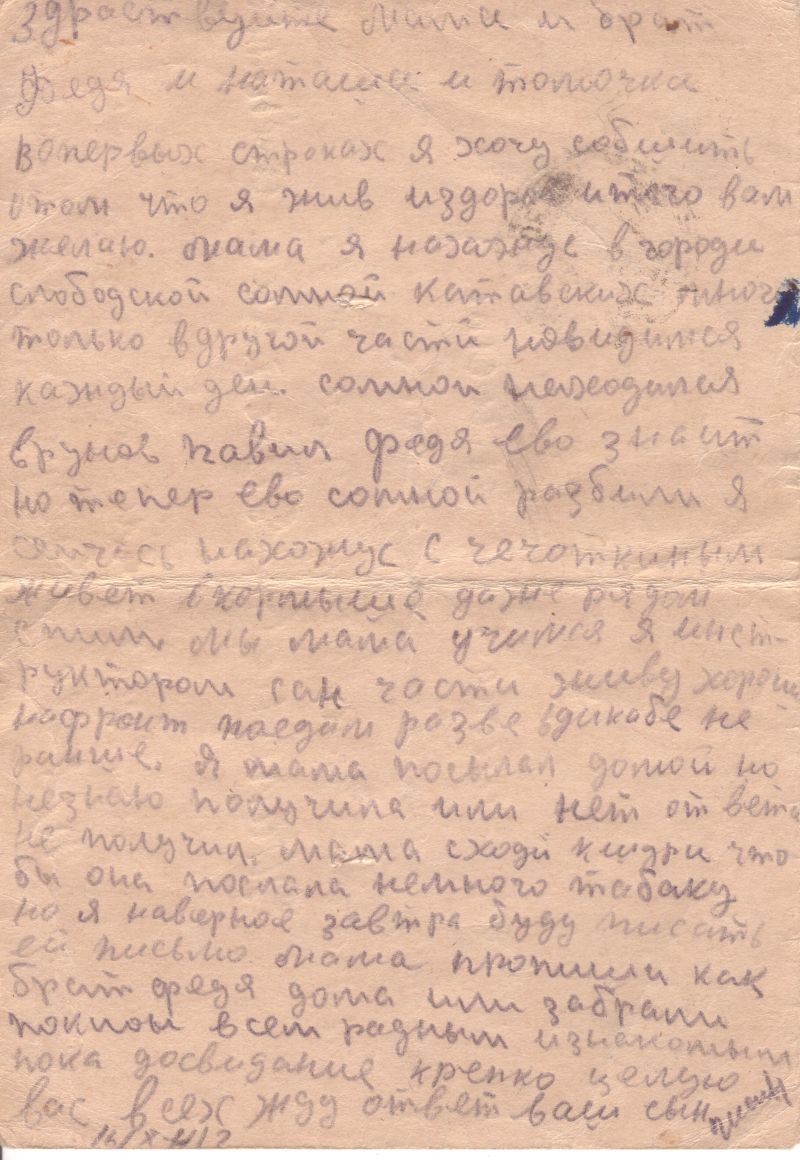 Здраствуйте мама и брат
Федя и наташа и томочка
вопервых строках я хочу собшить
отом что я жив издоров итого вам
желаю. мама я нахажус в городи
слободской сомной Катавских много
только вдругой части новидимся
каждый ден. сомной находился
врунов павил федя ево знаит
но тепер ево сомной разбили я
сейчась нахожус с чечоткиным
живет даже рядом
спим. мы мама учимся я инст-
руктором сан части живу хорошо
нафронт поедим разве вдикабе не
раньше. Я мама посылал домой но
незнаю получила или нет ответа
не получил. мама сходи что
бы она послала немного табаку
но я наверное завтра буду писать
ей письмо мама пропиши как
брат федя дома или забрали
поклон всем радным изнакомым
пока досвидание крепко целую
вас всех жду ответ ваш сын